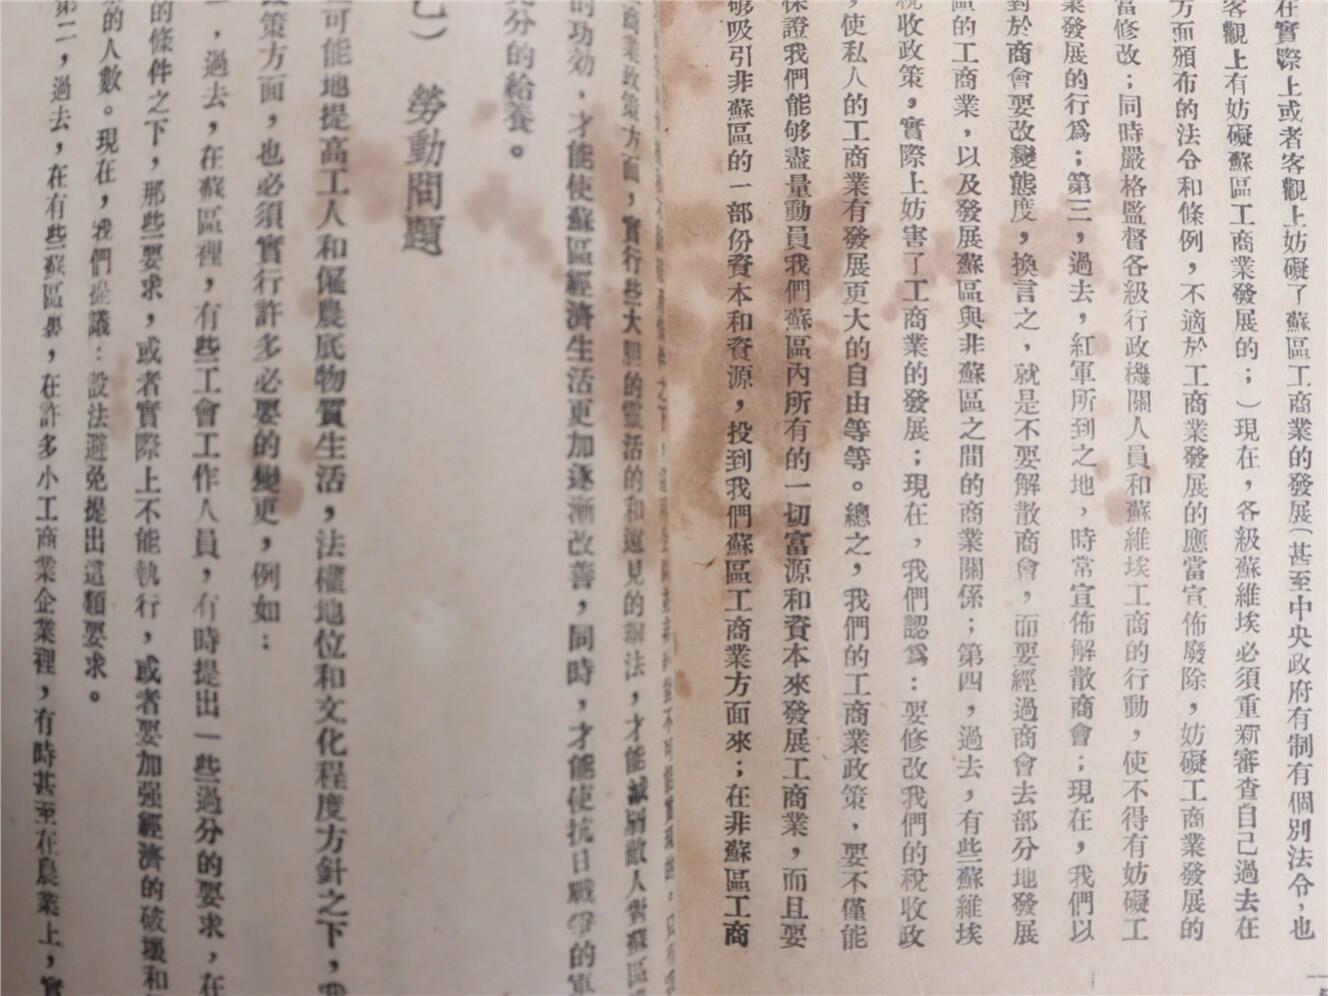 在實際上或者客觀上妨礙了蘇區工商業的發展（甚至中央政府有制有個別法令，也
客觀上有妨礙蘇區工商業發展的；）現在，各級蘇維埃必須重新審查自己過去在
方面頒布的法令和條例，不適於工商業發展的應當宣佈廢除，妨礙工商業發展的
當修改；同時嚴格監督各級行政機關人員和蘇維埃工商的行動，使不得有妨礙工
業發展的行爲；第三，過去，紅軍所到之地，時常宣佈解散商會；現在，我們以
對於商會要改變態度，換言之，就是不要解散商會，而要經過商會去部分地發展
區的工商業，以及發展蘇區與非蘇區之間的商業關係；第四，過去，有些蘇維埃
稅收政策，實際上妨害了工商業的發展；現在，我們認爲：要修改我們的稅收政
，使私人的工商業有發展更大的自由等等。總之，我們的工商業政策，要不僅能
保證我們能够盡量動員我們蘇區內所有的一切富源和資本來發展工商業，而且要
够吸引非蘇區的一部份資本和資源，投到我們蘇區工商業方面來；在非蘇區工商
商業政策方面，實行些大胆的靈活的和遠見的辦法，才能減弱敵人對蘇區
的功効，才能使蘇區經濟生活更加逐漸改善，同時，才能使抗日戰爭的軍
充分的給養。
乙）　勞動問題
可能地提高工人和僱農底物質生活，法權地位和文化程度方針之下，我
政策方面，也必須實行許多必要的變更，例如：
一，過去，在蘇區裡，有些工會工作人員，有時提出一些過分的要求，在
的條件之下，那些要求，或者實際上不能執行，或者要加强經濟的破壞和
的人數。現在，我們提議：設法避免提出這類要求。
第二，過去，在有些蘇區裏，在許多小工商業企業裡，有時甚至在農業上，實